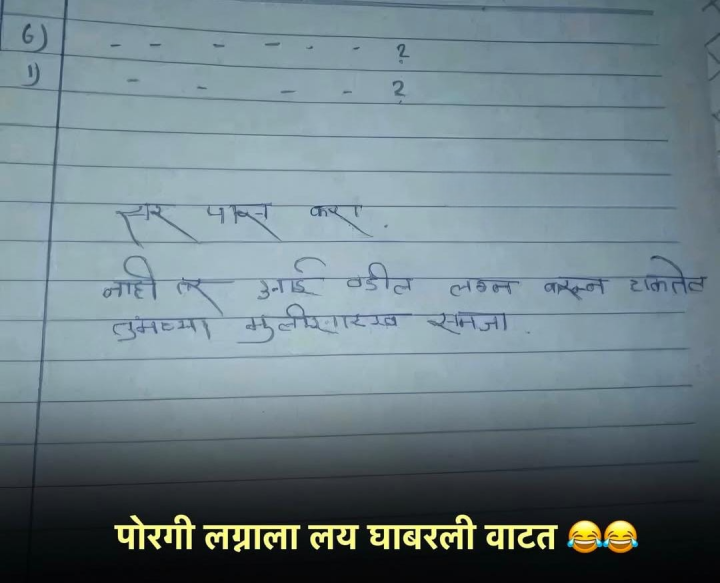 6) - - - - - - ?
1) - - - - ?
सर पास करा.
नाही तर आई वडील लग्न करून टाकतील
तुमच्या मुलीसारख समजा.
पोरगी लग्नाला लय घाबरली वाटत 😂😂